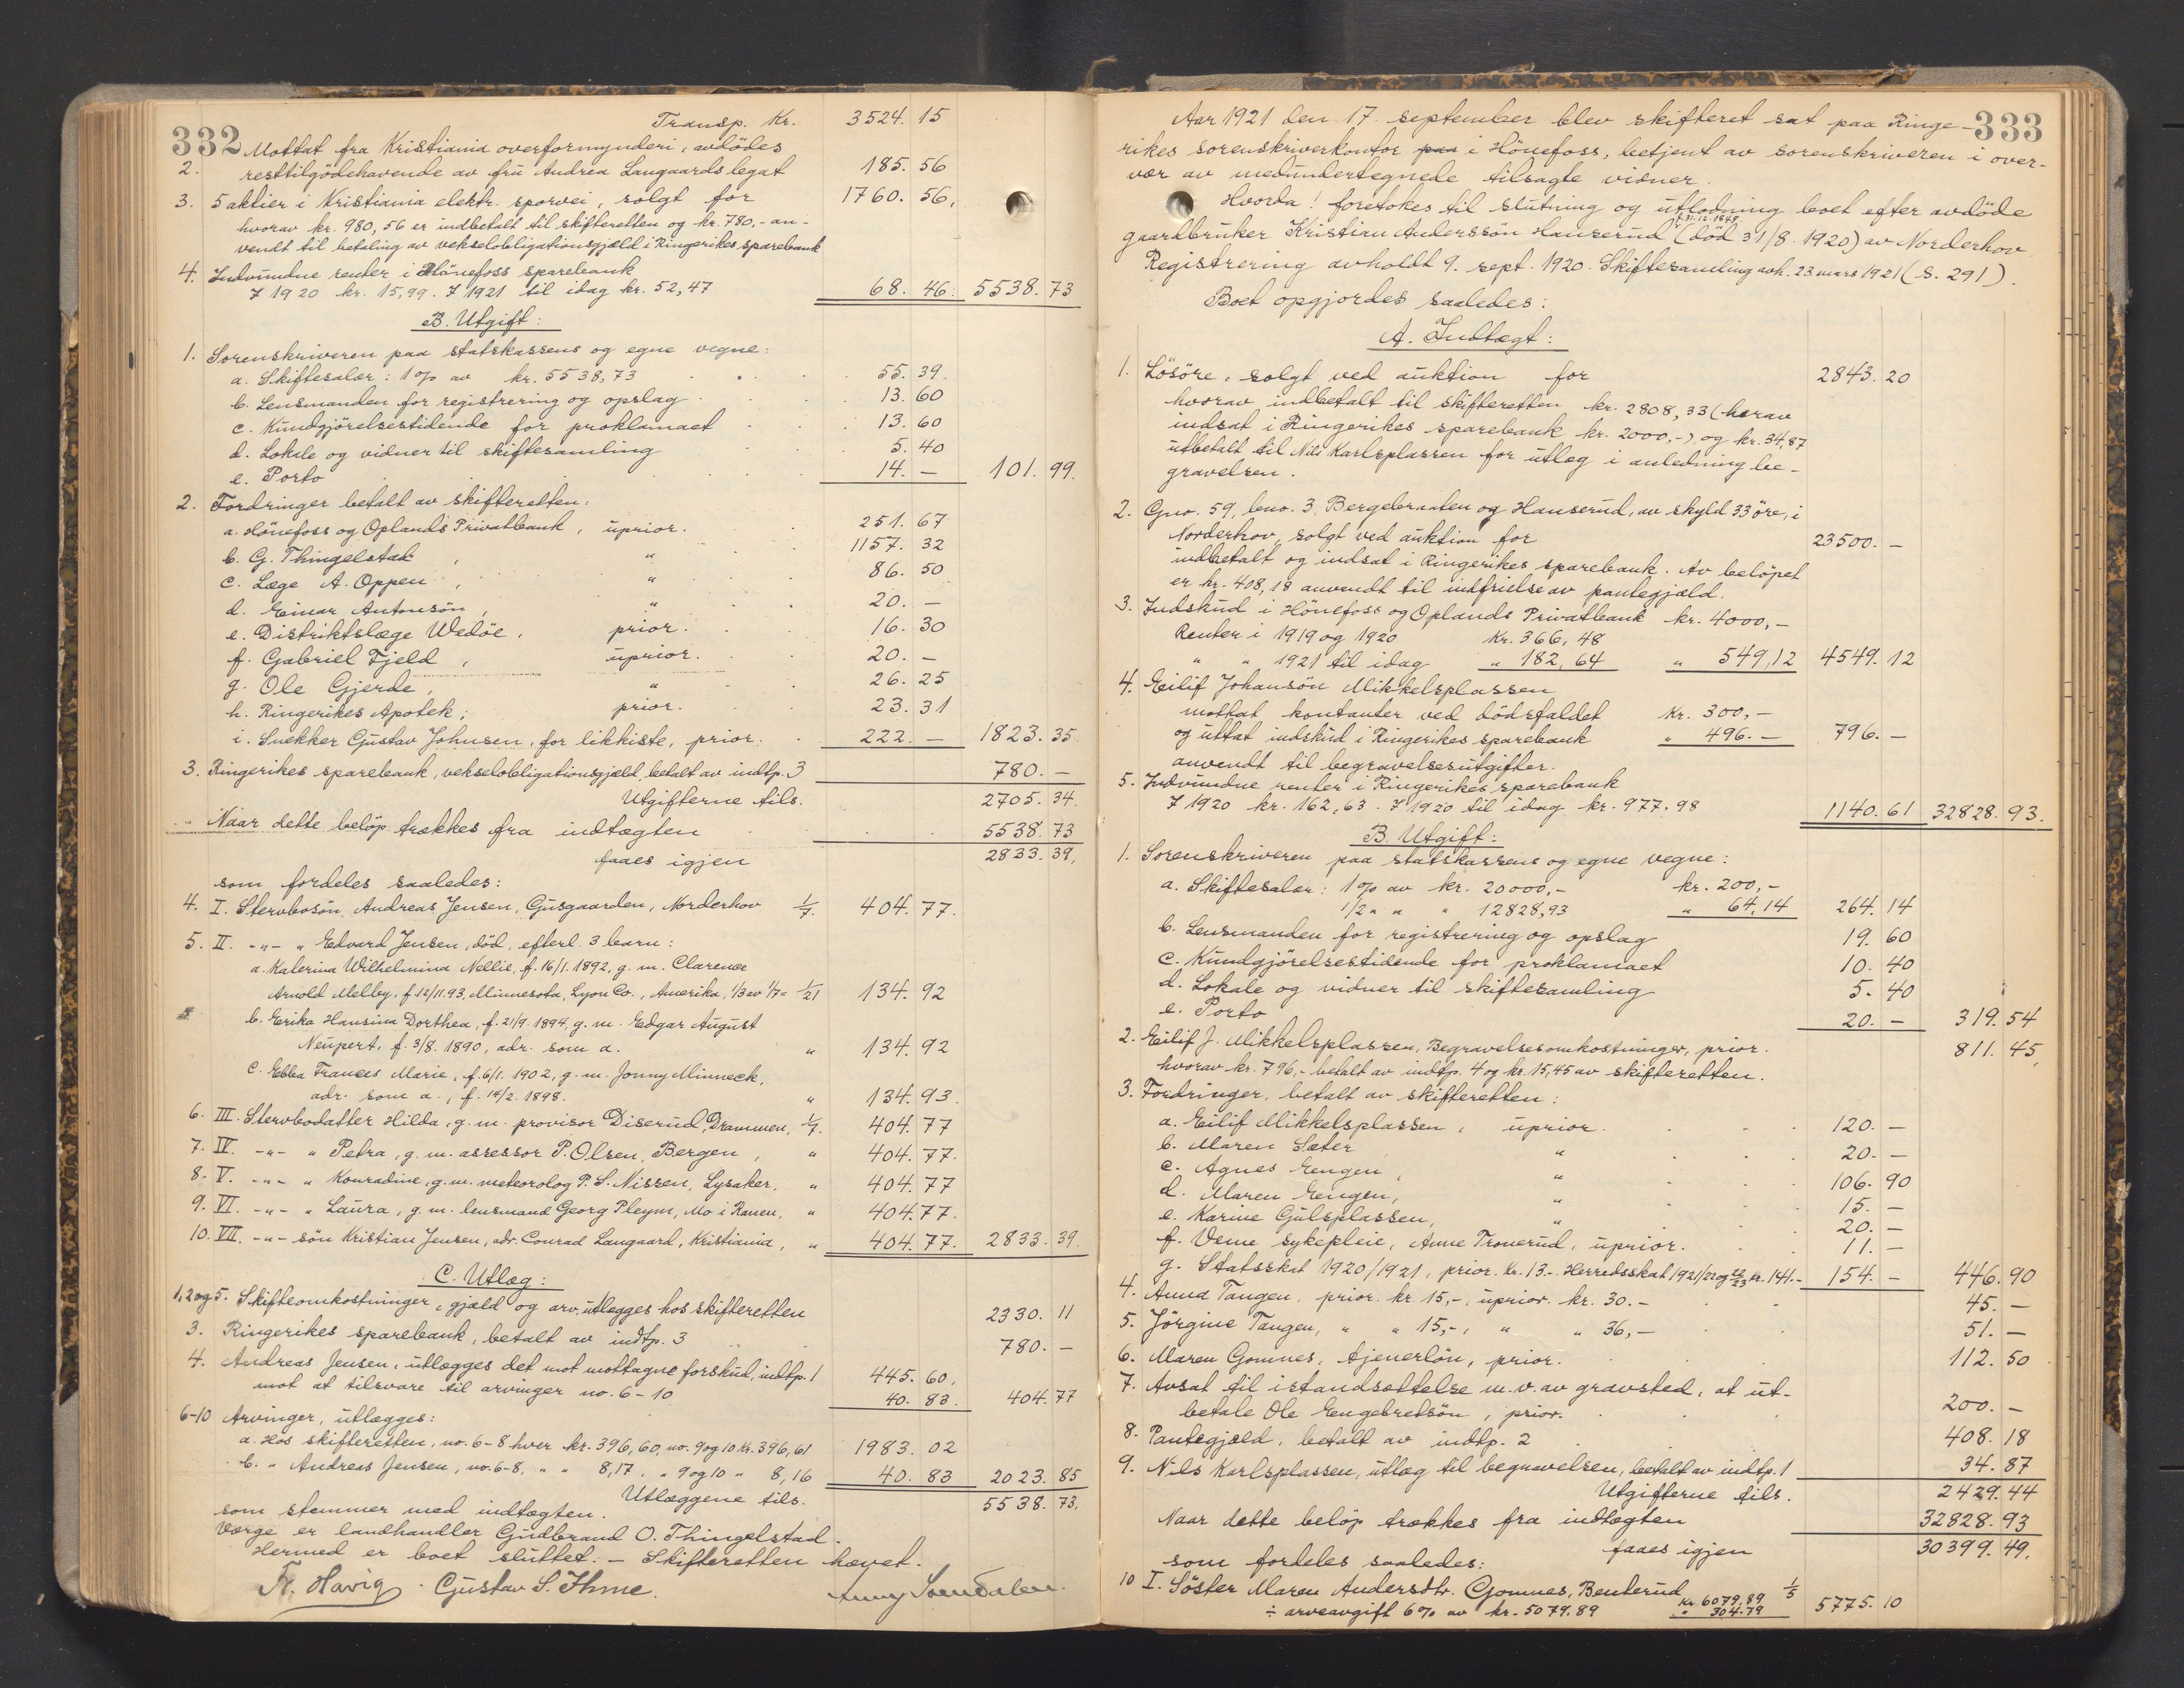 332
Transp. Kr. 3524. 15
2. Mottat fra Kristiania overformynderi, avdödes
resttilgodehavende av fru Andrea Langaards legat 185. 56
3. 5 aktier i Kristiania elektr. sporvei, solgt for 1760. 56.
hvorav kr. 980,56 er indbetalt til skifteretten og kr. 780,- an-
vendt til betaling av vekselobligationsgjæld i Ringerikes sparebank
4. Indvundne renter i Hönefoss sparebank
I 1920 kr. 15,99. I 1921 til idag kr. 52,47 68. 46. 5538. 73
B. Utgift:
1. Sorenskriveren paa statskassens og egne vegne:
a. Skiftesalær: 1% av kr. 5538,73 55. 39.
b. Lensmanden for registrering og opslag 13. 60
c. Kundgjörelsestidende for proklamaet 13. 60
d. Lokale og vidner til skiftesamling 5. 40
e. Porto 14. — 101. 99.
2. Fordringer betalt av skifteretten:
a. Hönefoss og Oplands Privatbank, uprior. 251. 67
b. G. Thingelstad, " 1157. 32
c. Læge A. Oppen, " 86. 50
d. Einar Antonsön, " 20. —
e. Distriktslæge Wedöe, prior. 16. 30
f. Gabriel Fjeld, uprior. 20. —
g. Ole Gjerde, " 26. 25
h. Ringerikes Apotek, prior. 23. 31
i. Snekker Gustav Johnsen, for likkiste, prior. 222. — 1823. 35
3. Ringerikes sparebank, vekselobligationsgjæld, betalt av indtp. 3 780. —
Utgifterne tils. 2705. 34.
Naar dette belöp trækkes fra indtægten 5538. 73
faaes igjen 2833. 39,
som fordeles saaledes:
4. I. Stervbosön Andreas Jensen, Gusgaarden, Norderhov 1/7. 404. 77.
5. II. -"- " Edvard Jensen, död, efterl. 3 barn:
a. Katerina Wilhelmina Nellie, f. 16/1. 1892, g. m. Clarence
Arnold Melby, f. 12/11. 93, Minnesota, Lyon Co., Amerika, 1/3 av 1/7 = 1/21 134. 92
b. Erika Hansina Dorthea, f. 21/9. 1894, g. m. Edgar August
Neupert, f. 3/8. 1890, adr. som a. " 134. 92
c. Ebba Frances Marie, f. 6/1. 1902, g. m. Jonny Minneck,
adr. som a., f. 14/2. 1898. " 134. 93.
6. III. Stervbodatter Hilda, g. m. provisor Diserud, Drammen, 1/7. 404. 77
7. IV. -"- " Petra, g. m. assessor P. Olsen, Bergen, " 404. 77.
8. V. -"- " Konradine, g. m. meteorolog P. S. Nissen, Lysaker, " 404. 77
9. VI. -"- " Laura, g. m. lensmand Georg Pleym, Mo i Ranen, " 404. 77.
10. VII. -"- sön Kristian Jensen, adr. Conrad Langaard, Kristiania, " 404. 77. 2833. 39.
C. Utlæg:
1, 2 og 5. Skifteomkostninger, gjæld og arv, utlægges hos skifteretten 2330. 11
3. Ringerikes sparebank, betalt av indtp. 3 780. —
4. Andreas Jensen, utlægges det mot mottagne forskud, indtp. 1 445. 60.
mot at tilsvare til arvinger no. 6-10 40. 83. 404. 77
6-10 Arvinger, utlægges:
a. Hos skifteretten, no. 6-8 hver kr. 396,60, no. 9 og 10 kr. 396,61 1983. 02
b. " Andreas Jensen, no. 6-8, " " 8,17, " 9 og 10 " 8,16 40. 83 2023. 85
Utlæggene tils. 5538. 73,
som stemmer med indtægten.
Værge er landhandler Gudbrand O. Thingelstad.
Hermed er boet sluttet. — Skifteretten hævet.
Fr. Havig. Gustav S. Ihme. Anny Somdalen.
333
Aar 1921 den 17. september blev skifteret sat paa Ringe-
rikes sorenskriverkontor paa i Hönefoss, betjent av sorenskriveren i over-
vær av medundertegnede tilsagte vidner.
Hvorda! foretokes til slutning og utlodning boet efter avdöde
f. 31.12.1849
gaardbruker Kristian Anderssön Hanserud (död 31/8. 1920) av Norderhov
Registrering avholdt 9. sept. 1920. Skiftesamling avh. 23 mars 1921 (S. 291).
Boet opgjordes saaledes:
A. Indtægt:
1. Lösöre, solgt ved auktion for 2843. 20
hvorav indbetalt til skifteretten kr. 2808,33 (herav
indsat i Ringerikes sparebank kr. 2000,-), og kr. 34,87
utbetalt til Nils Karlsplassen for utlæg i anledning be-
gravelsen.
2. Gno. 59, bno. 3, Bergebraaten og Hanserud, av skyld 33 öre, i
Norderhov, solgt ved auktion for 23500. —
indbetalt og indsat i Ringerikes sparebank. Av belöpet
er kr. 408,18 anvendt til indfrielse av pantegjæld.
3. Indskud i Hönefoss og Oplands Privatbank kr. 4000,—
Renter i 1919 og 1920 Kr. 366,48
" " 1921 til idag " 182,64 " 549,12 4549. 12
4. Eilif Johansön Mikkelsplassen
mottat kontanter ved dödsfaldet Kr. 300,—
og uttat indskud i Ringerikes sparebank " 496.— 796. —
anvendt til begravelsesutgifter.
5. Indvundne renter i Ringerikes sparebank
I 1920 kr. 162,63. I 1920 til idag kr. 977,98 1140. 61 32828. 93.
B. Utgift:
1. Sorenskriveren paa statskassens og egne vegne:
a. Skiftesalær: 1% av kr. 20000,— kr. 200,—
1/2 " " " 12828,93 " 64,14 264. 14
b. Lensmanden for registrering og opslag 19. 60
c. Kundgjörelsestidende for proklamaet 10. 40
d. Lokale og vidner til skiftesamling 5. 40
e. Porto 20. — 319. 54
2. Eilif J. Mikkelsplassen, Begravelsesomkostninger, prior. 811. 45,
hvorav kr. 796,- betalt av indtp. 4 og kr. 15,45 av skifteretten.
3. Fordringer, betalt av skifteretten:
a. Eilif Mikkelsplassen, uprior. 120. —
b. Maren Sæter " 20. —
c. Agnes Engen, " 106. 90
d. Maren Engen, " 15. —
e. Karine Gulsplassen, " 20. —
f. Veme sykepleie, Anne Tronerud, uprior. 11. —
g. Statsskat 1920/1921, prior. Kr. 13.- Herredsskat 1921/22 og 22/23 kr. 141.- 154. — 446. 90
4. Anna Tangen, prior. kr. 15,-, uprior. kr. 30.— 45. —
5. Jörgine Tangen, " " 15,-, " " 36,— 51. —
6. Maren Gomnes, tjenerlön, prior. 112. 50
7. Avsat til istandsættelse m. v. av gravsted, at ut-
betale Ole Engebretsön, prior. 200. —
8. Pantegjæld, betalt av indtp. 2 408. 18
9. Nils Karlsplassen, utlæg til begravelsen, betalt av indtp. 1 34. 87
Utgifterne tils. 2429. 44
Naar dette belöp trækkes fra indtægten 32828. 93
faaes igjen 30399. 49.
som fordeles saaledes:
10 I. Söster Maren Andersdtr. Gomnes, Benterud 1/5 Kr. 6079,89
÷ arveavgift 6% av kr. 5079.89 " 304.79 5775. 10